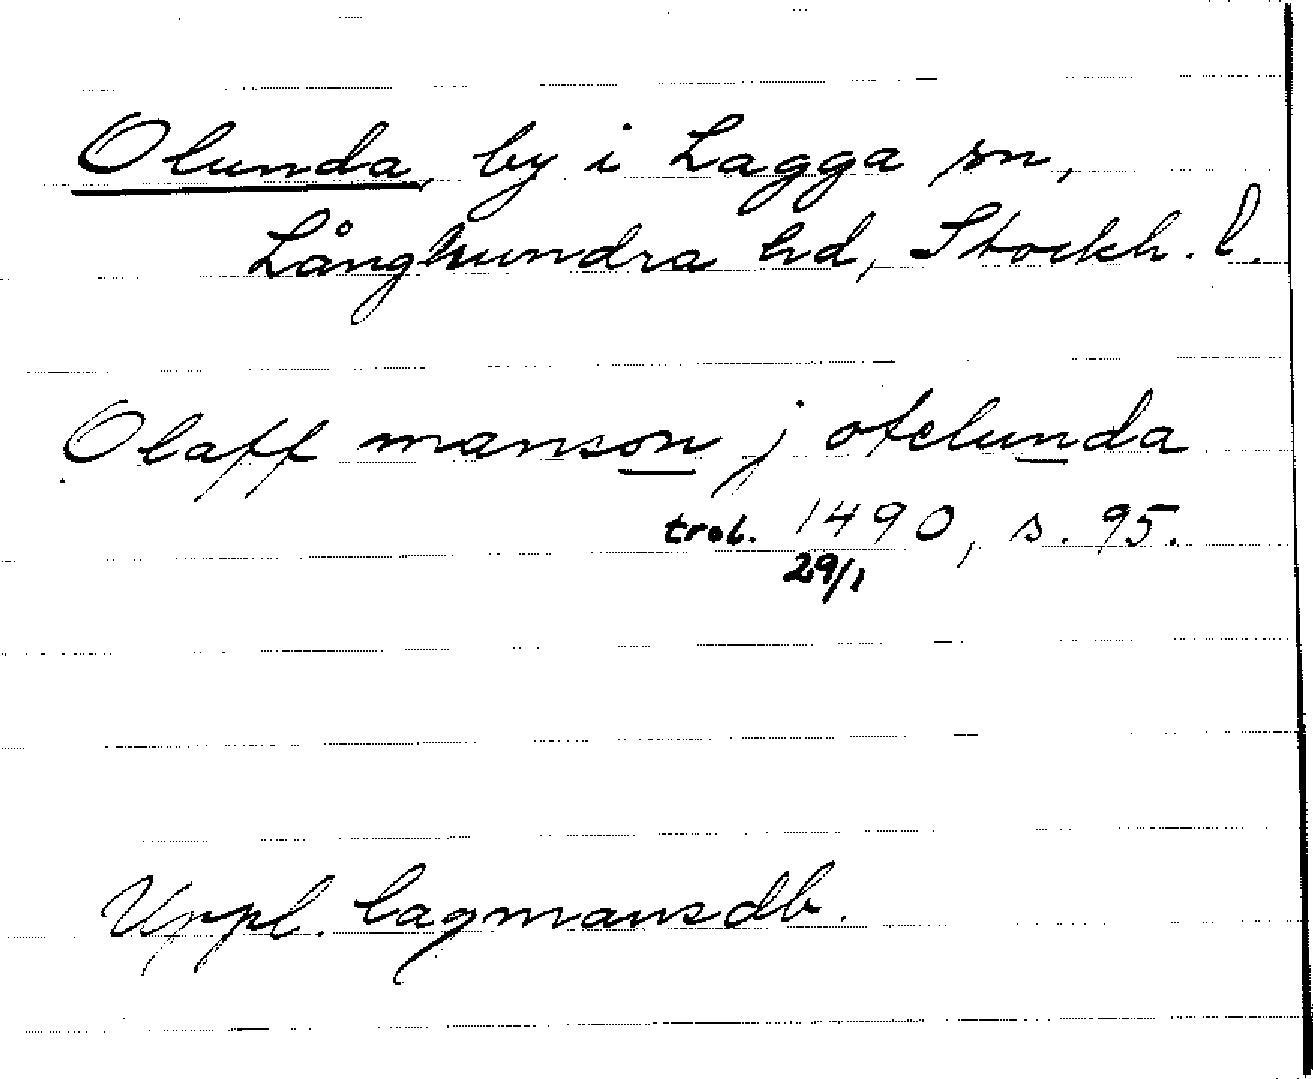 Olunda, by i Lagga sn,
Långhundra hd, Stockh. l.
Olaff manson j ofelunda
trol. 1490, s. 95.
29/1
Uppl. lagmansdb.